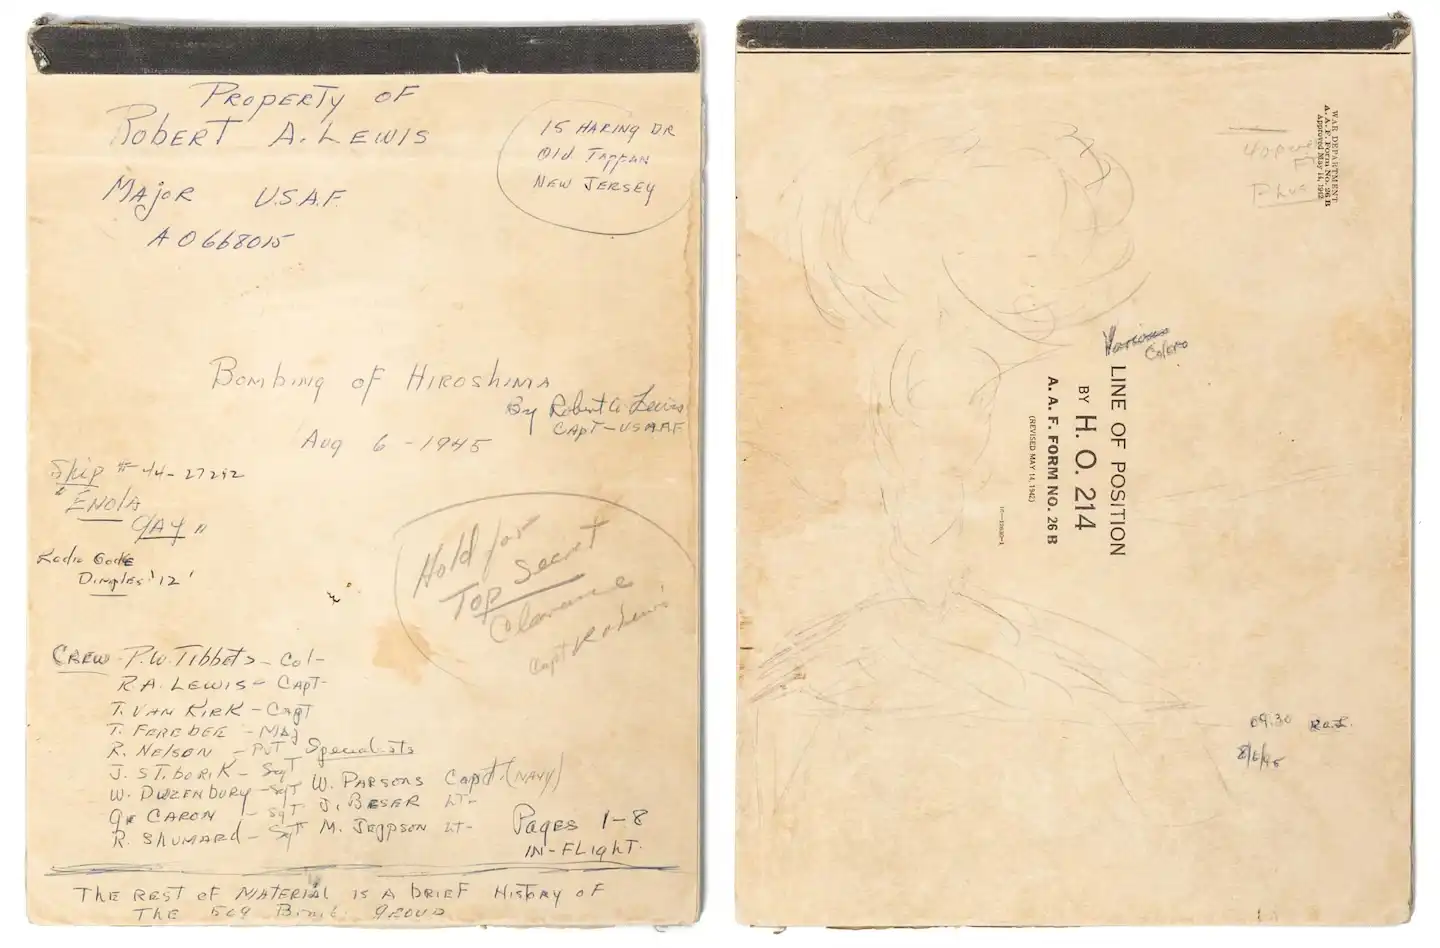 Property of
Robert A. Lewis
15 Haring Dr
Old Tappan
New Jersey
Major U.S.A.F.
AO668015
Bombing of Hiroshima
By Robert A Lewis
Capt-USAAF
Aug 6 - 1945
Ship # 44-27292
"Enola
Gay"
Radio Code
Dimples '12'
Hold for
Top Secret
Clearance
Capt R A Lewis
Crew - P.W. Tibbets - Col-
R.A. Lewis - Capt-
T. Van Kirk - Capt
T. Ferebee - Maj
R. Nelson - Pvt
J. Stiborik - Sgt
W. Duzenbury - Sgt
Ge Caron - Sgt
R. Shumard - Sgt
Specialists
W. Parsons Capt. (Navy)
J. Beser Lt-
M. Jeppson Lt-
Pages 1-8
In-Flight.
The rest of material is a brief history of
the 509 Bomb. Group
WAR DEPARTMENT
A. A. F. Form No. 26 B
Approved May 14, 1942
Plus
Various
Colors
LINE OF POSITION
BY
H. O. 214
A. A. F. FORM NO. 26 B
(REVISED MAY 14, 1942)
0930 R.A.L.
8/6/45